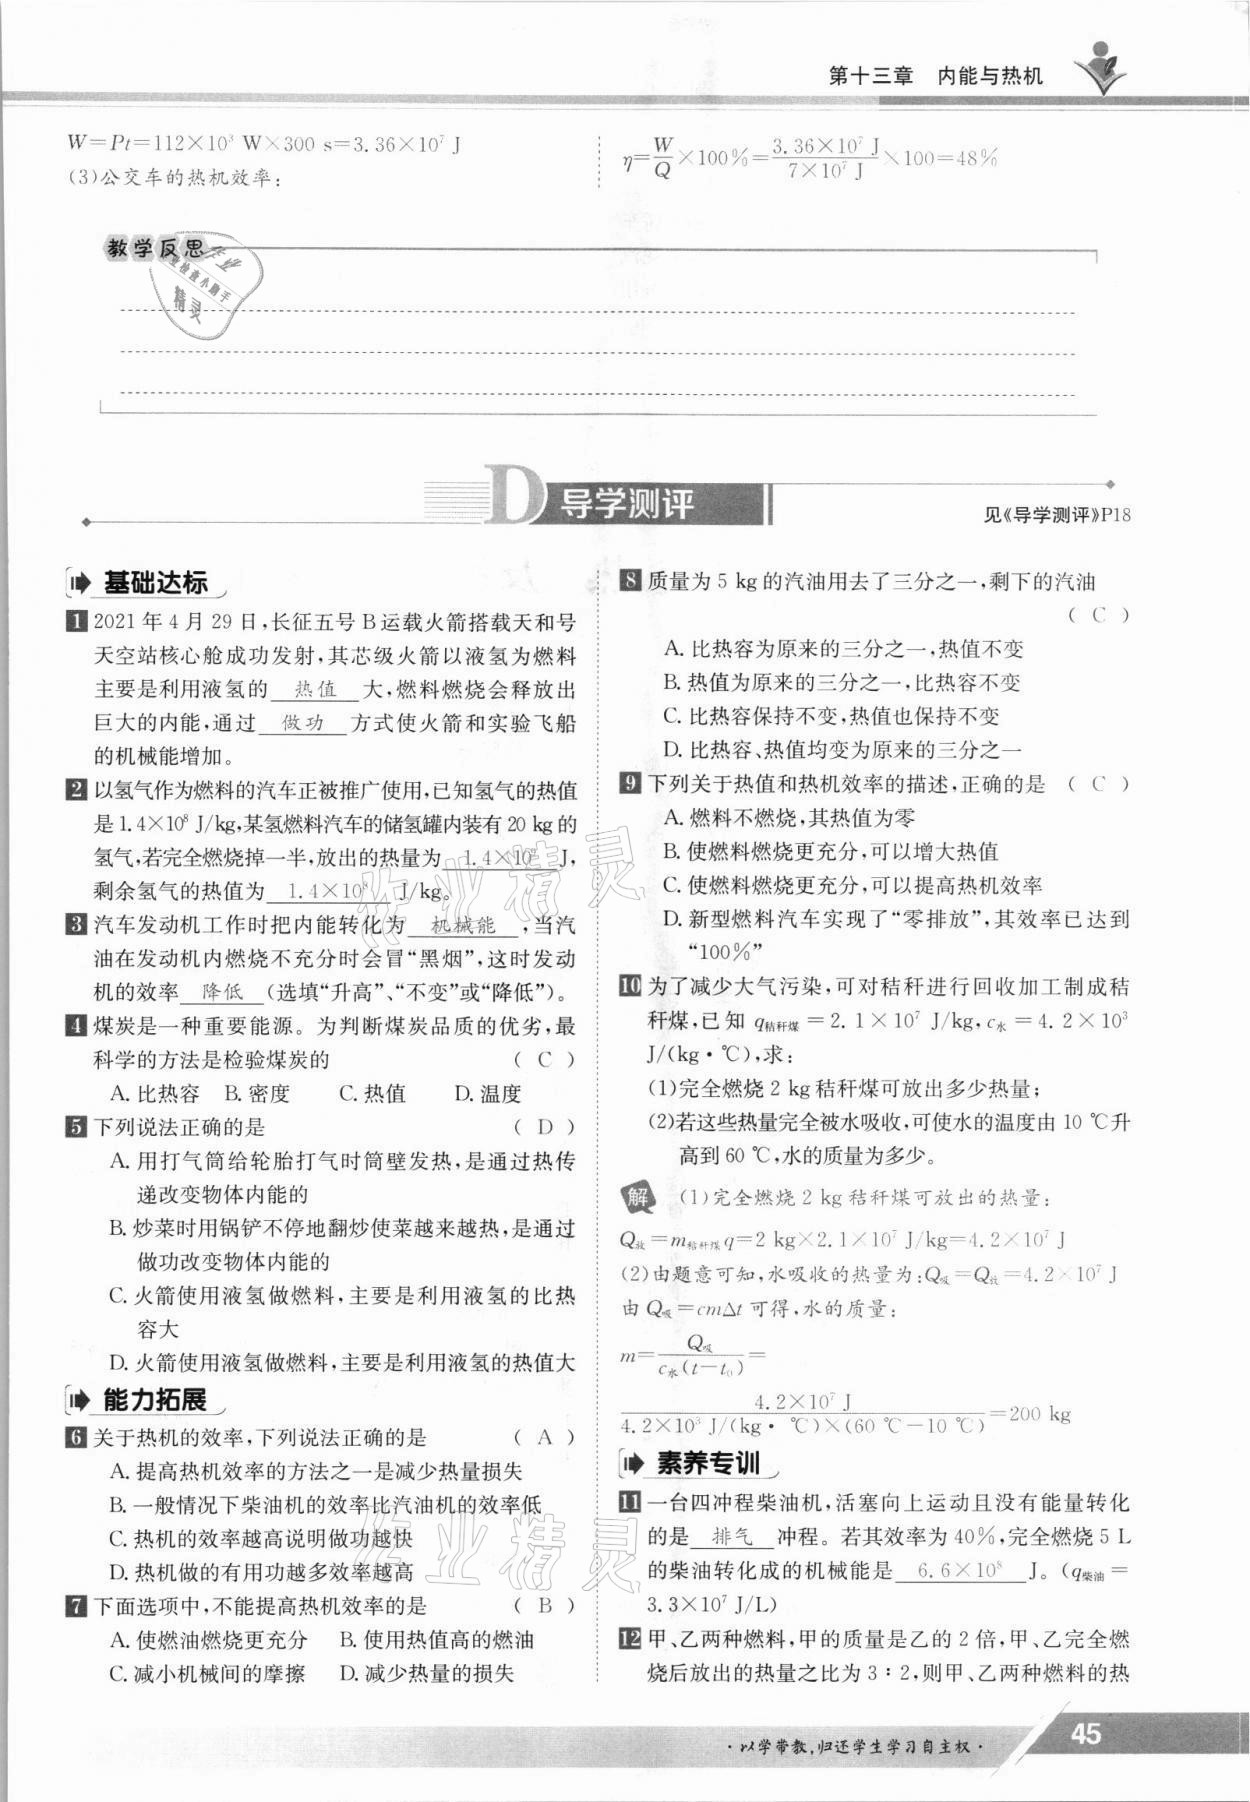 第十三章 内能与热机
W=Pt=112×10³ W×300 s=3.36×10⁷ J
(3)公交车的热机效率:
η=W/Q×100%=3.36×10⁷ J/7×10⁷ J×100=48%
教学反思
D 导学测评
见《导学测评》P18
基础达标
1 2021 年 4 月 29 日,长征五号 B 运载火箭搭载天和号
天空站核心舱成功发射,其芯级火箭以液氢为燃料
主要是利用液氢的 热值 大,燃料燃烧会释放出
巨大的内能,通过 做功 方式使火箭和实验飞船
的机械能增加。
2 以氢气作为燃料的汽车正被推广使用,已知氢气的热值
是 1.4×10⁸ J/kg,某氢燃料汽车的储氢罐内装有 20 kg 的
氢气,若完全燃烧掉一半,放出的热量为 1.4×10⁹ J,
剩余氢气的热值为 1.4×10⁸ J/kg。
3 汽车发动机工作时把内能转化为 机械能 ,当汽
油在发动机内燃烧不充分时会冒“黑烟”,这时发动
机的效率 降低 (选填“升高”、“不变”或“降低”)。
4 煤炭是一种重要能源。为判断煤炭品质的优劣,最
科学的方法是检验煤炭的 ( C )
A. 比热容 B. 密度 C. 热值 D. 温度
5 下列说法正确的是 ( D )
A. 用打气筒给轮胎打气时筒壁发热,是通过热传
递改变物体内能的
B. 炒菜时用锅铲不停地翻炒使菜越来越热,是通过
做功改变物体内能的
C. 火箭使用液氢做燃料,主要是利用液氢的比热
容大
D. 火箭使用液氢做燃料,主要是利用液氢的热值大
能力拓展
6 关于热机的效率,下列说法正确的是 ( A )
A. 提高热机效率的方法之一是减少热量损失
B. 一般情况下柴油机的效率比汽油机的效率低
C. 热机的效率越高说明做功越快
D. 热机做的有用功越多效率越高
7 下面选项中,不能提高热机效率的是 ( B )
A. 使燃油燃烧更充分 B. 使用热值高的燃油
C. 减小机械间的摩擦 D. 减少热量的损失
8 质量为 5 kg 的汽油用去了三分之一,剩下的汽油
( C )
A. 比热容为原来的三分之一,热值不变
B. 热值为原来的三分之一,比热容不变
C. 比热容保持不变,热值也保持不变
D. 比热容、热值均变为原来的三分之一
9 下列关于热值和热机效率的描述,正确的是 ( C )
A. 燃料不燃烧,其热值为零
B. 使燃料燃烧更充分,可以增大热值
C. 使燃料燃烧更充分,可以提高热机效率
D. 新型燃料汽车实现了“零排放”,其效率已达到
“100%”
10 为了减少大气污染,可对秸秆进行回收加工制成秸
秆煤,已知 q秸秆煤=2.1×10⁷ J/kg,c水=4.2×10³
J/(kg·℃),求:
(1)完全燃烧 2 kg 秸秆煤可放出多少热量;
(2)若这些热量完全被水吸收,可使水的温度由 10 ℃升
高到 60 ℃,水的质量为多少。
解 (1)完全燃烧 2 kg 秸秆煤可放出的热量:
Q放=m秸秆煤q=2 kg×2.1×10⁷ J/kg=4.2×10⁷ J
(2)由题意可知,水吸收的热量为:Q吸=Q放=4.2×10⁷ J
由 Q吸=cmΔt 可得,水的质量:
m=Q吸/c水(t-t₀)=
4.2×10⁷ J/4.2×10³ J/(kg·℃)×(60 ℃-10 ℃)=200 kg
素养专训
11 一台四冲程柴油机,活塞向上运动且没有能量转化
的是 排气 冲程。若其效率为 40%,完全燃烧 5 L
的柴油转化成的机械能是 6.6×10⁸ J。(q柴油=
3.3×10⁷ J/L)
12 甲、乙两种燃料,甲的质量是乙的 2 倍,甲、乙完全燃
烧后放出的热量之比为 3∶2,则甲、乙两种燃料的热
·以学带教,归还学生学习自主权·
45
作业精灵
作业精灵
作业
作业检查小助手
精灵